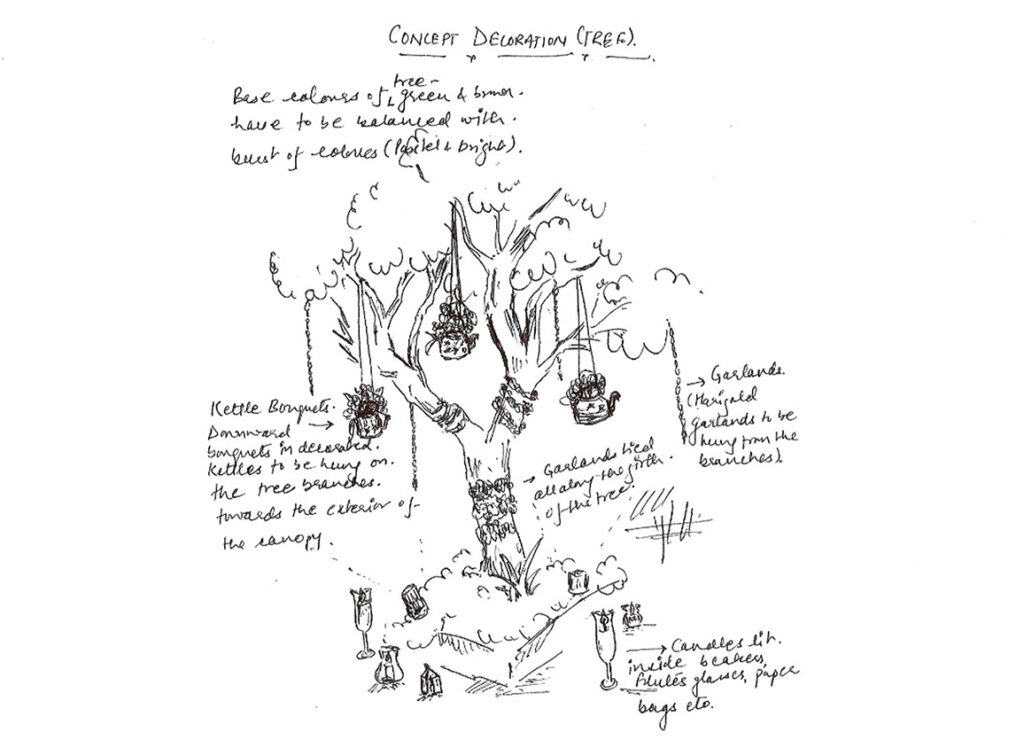 CONCEPT DECORATION (TREE).
tree -
Base colours of green & brown.
have to be balanced with.
burst of colours (Pastel & bright).
Kettle Bouquets.
Downward
bouquets in decorated.
kettles to be hung on.
the tree branches.
towards the exterior of
the canopy.
Garlands tied
all along the girth.
of the tree.
Garlands.
(Marigold
garlands to be
hung from the
branches).
Candles lit.
inside beakers,
glasses, paper
bags etc.